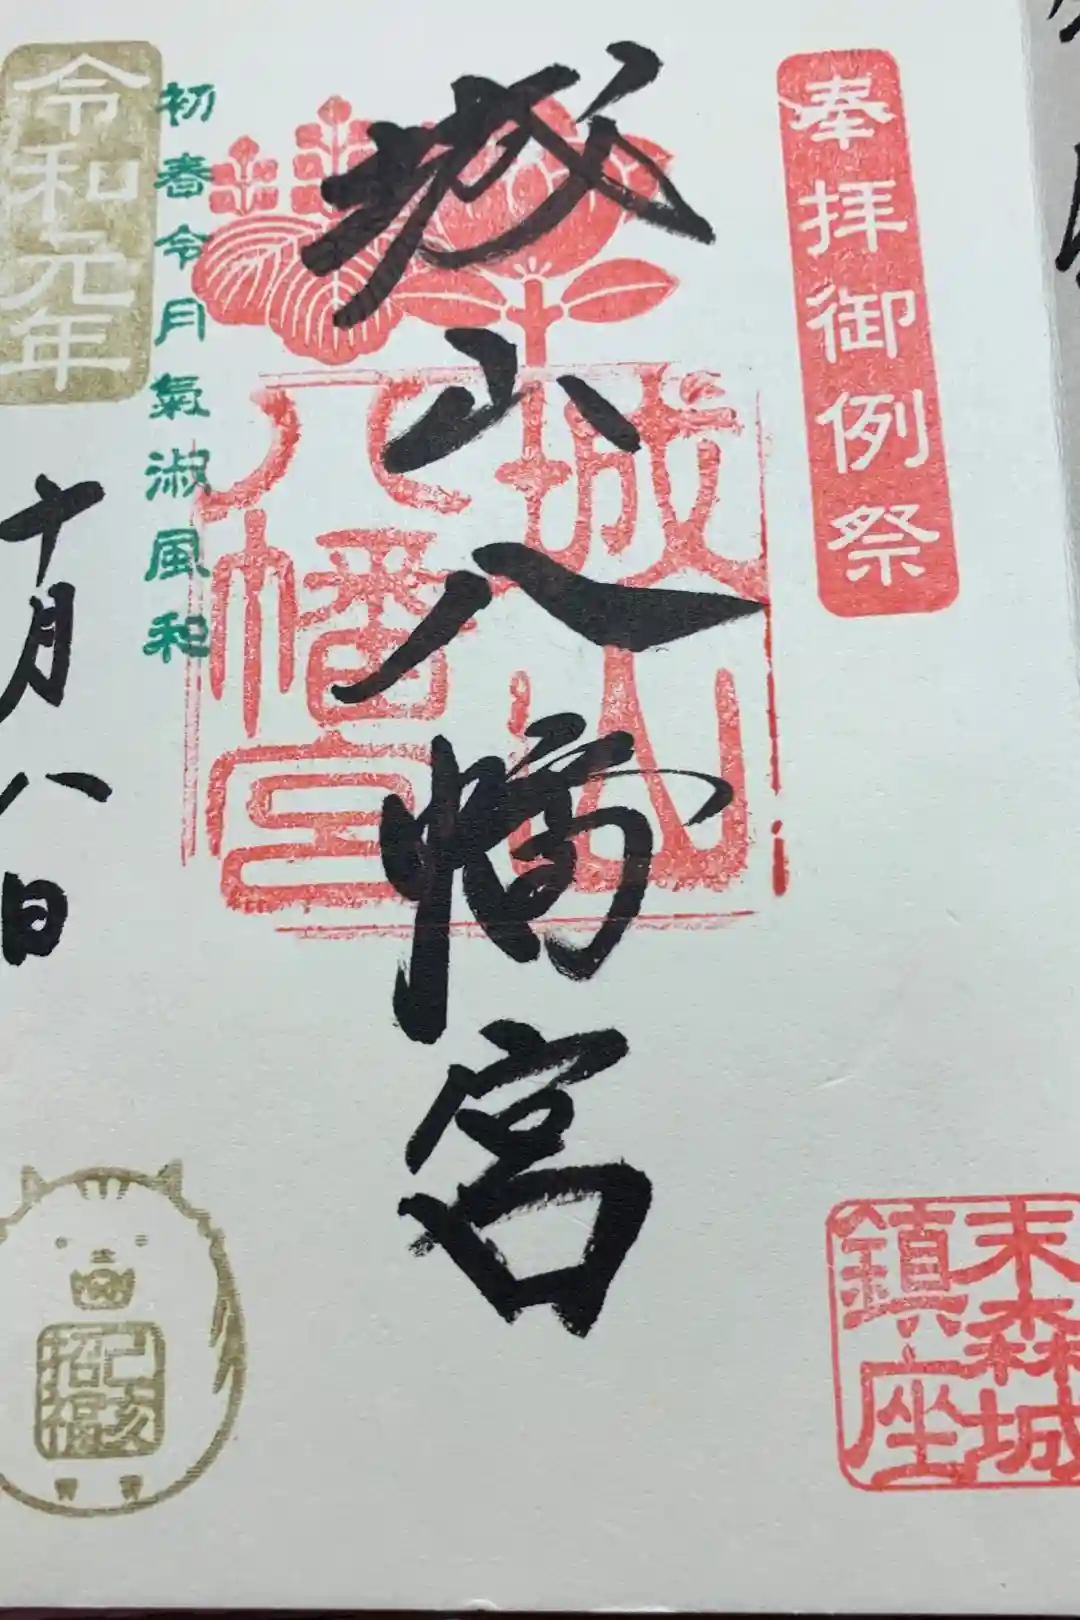 奉拝御例祭
城山八幡宮
城山
八幡宮
初春令月氣淑風和
令和元年
十月八日
末森城
鎮座
己亥
招福